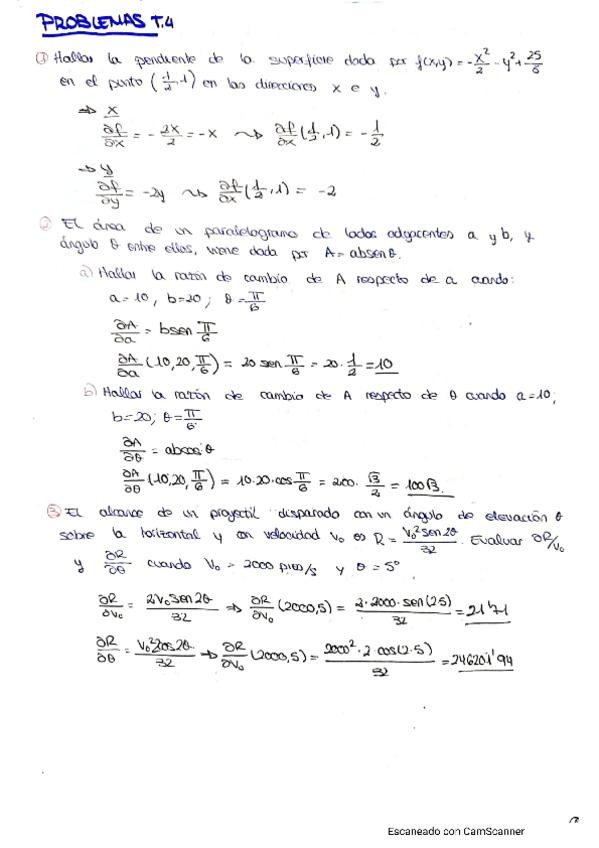 PROBLEMAS T.4
① Hallar la pendiente de la superficie dada por f(x,y) = -x²/2 - y² + 25/8
en el punto (1/2, 1) en las direcciones x e y.
⇒ x
∂f/∂x = -2x/2 = -x ⇝ ∂f/∂x (1/2, 1) = -1/2
→ y
∂f/∂y = -2y ⇝ ∂f/∂x (1/2, 1) = -2
② El área de un paralelogramo de lados adyacentes a y b, y
ángulo θ entre ellos, viene dada por A = absenθ.
a) Hallar la razón de cambio de A respecto de a cuando:
a = 10, b = 20; θ = π/6
∂A/∂a = bsen π/6
∂A/∂a (10, 20, π/6) = 20 sen π/6 = 20 · 1/2 = 10
b) Hallar la razón de cambio de A respecto de θ cuando a = 10;
b = 20; θ = π/6.
∂A/∂θ = abcos θ
∂A/∂θ (10, 20, π/6) = 10·20·cos π/6 = 200 · √3/2 = 100√3.
③ El alcance de un proyectil disparado con un ángulo de elevación θ
sobre la horizontal y con velocidad v₀ es R = v₀² sen 2θ/32. Evaluar ∂R/v₀
y ∂R/∂θ cuando v₀ = 2000 pies/s y θ = 5°
∂R/∂v₀ = 2v₀ sen 2θ/32 ⇒ ∂R/∂v₀ (2000, 5) = 2·2000·sen(2·5)/32 = 21'71
∂R/∂θ = v₀² 2cos 2θ/32 ⇒ ∂R/∂v₀ (2000, 5) = 2000²·2·cos(2·5)/32 = 246201'94
Escaneado con CamScanner